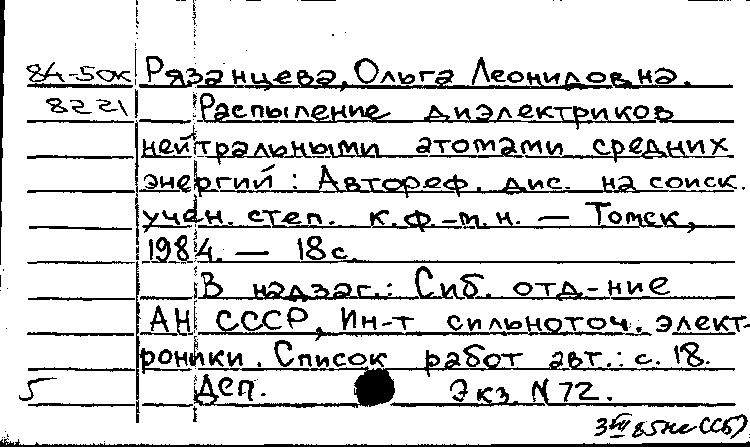 84-50к Рязанцева, Ольга Леонидовна.
8221 Распыление диэлектриков
нейтральными атомами средних
энергий: Автореф. дис. на соиск.
учен. степ. к.ф.-м.н. — Томск,
1984. — 18 с.
В надзаг.: Сиб. отд-ние
АН СССР, Ин-т сильноточ. элект-
роники. Список работ авт.: с. 18.
5 ДСП. Экз. N 72.